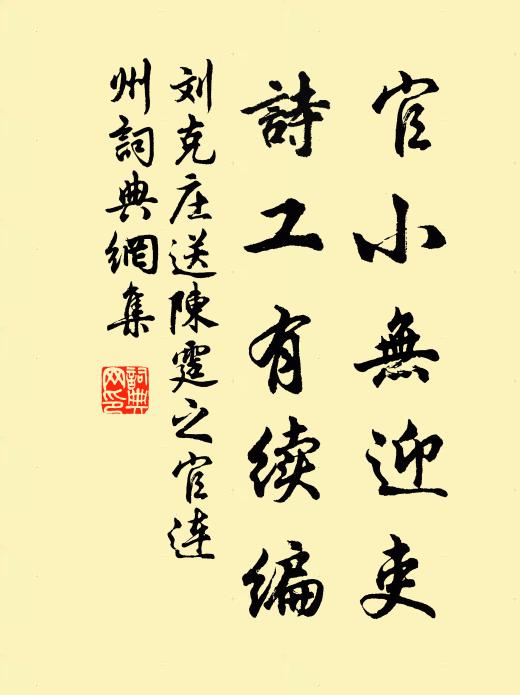 官小無迎吏
詩工有续编
刘克庄送陳霆之官連
州詞典網集
詞典
网印